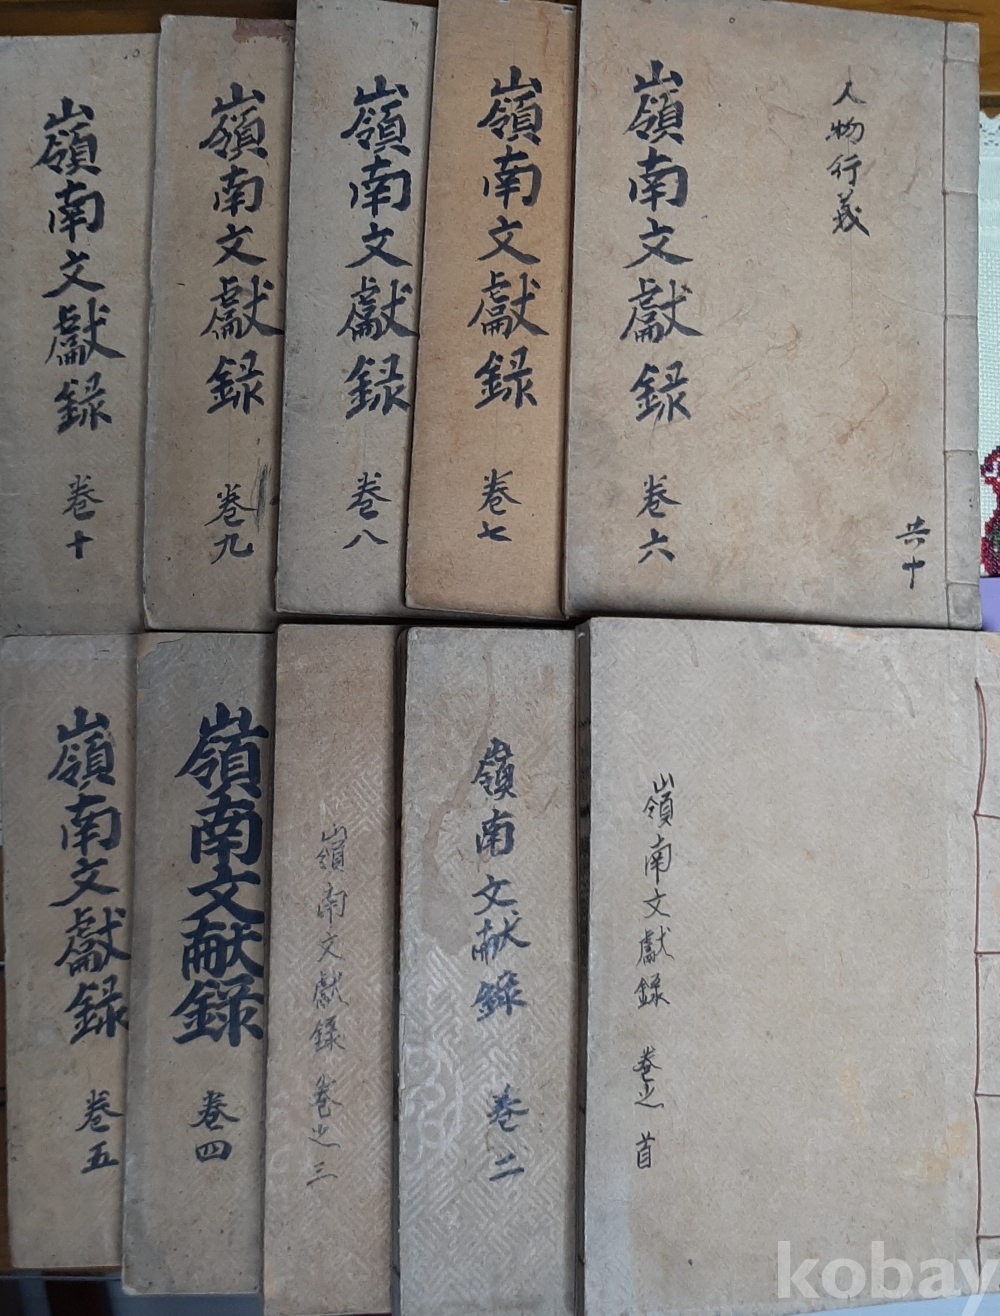 人物行義
共十
嶺南文獻録 卷六
嶺南文獻録 卷七
嶺南文獻録 卷八
嶺南文獻録 卷九
嶺南文獻録 卷十
嶺南文獻録 卷之首
嶺南文献録 卷二
嶺南文獻録 卷之三
嶺南文献録 卷四
嶺南文獻録 卷五
kobay